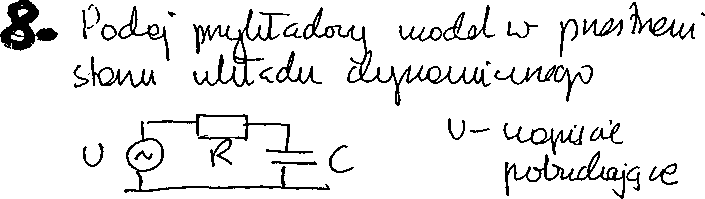 8. Podaj przykładowy model w przestrzeni
stanu układu dynamicznego
U R C U - napięcie
pobudzające